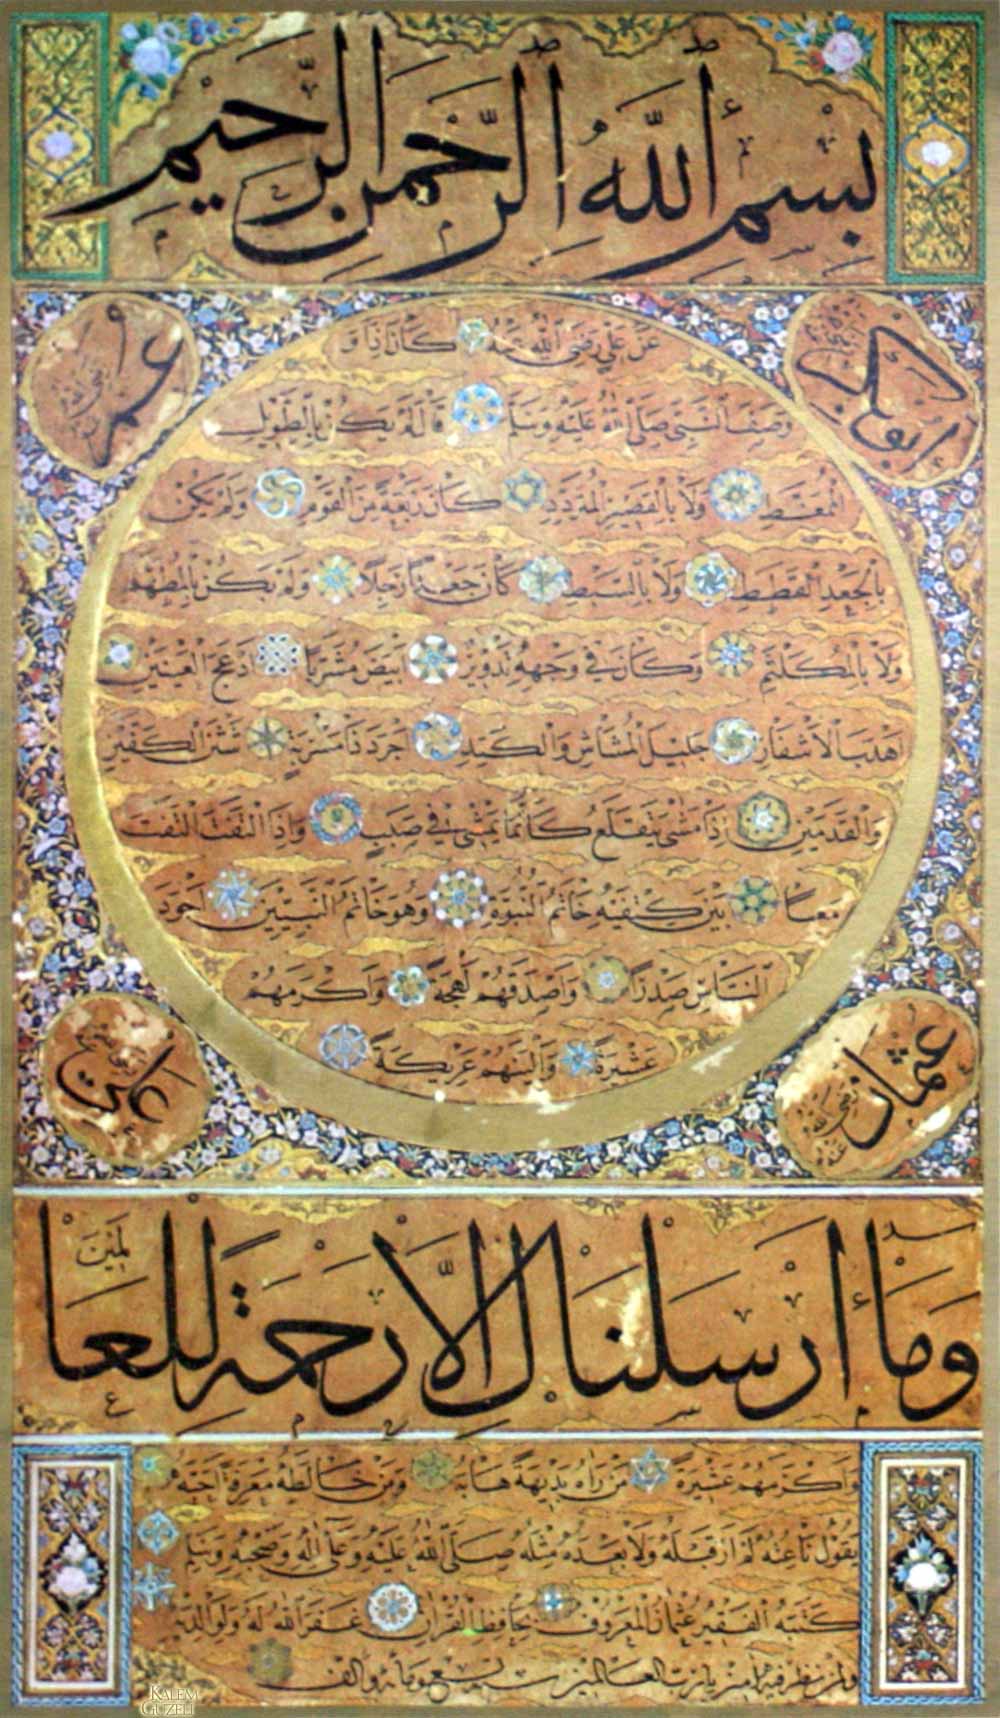 بسم الله الرحمن الرحيم
ابو بكر رضى الله عنه
عمر رضى الله عنه
عن علي رضى الله عنه كان اذا
وصف النبي صلى الله عليه وسلم قال لم يكن بالطويل
الممغط ولا بالقصير المتردد كان ربعة من القوم ولم يكن
بالجعد القطط ولا بالسبط كان جعدا رجلا ولم يكن بالمطهم
ولا بالمكلثم وكان في وجهه تدوير ابيض مشربا ادعج العينين
اهدب الاشفار جليل المشاش والكتد اجرد ذا مسربة شثن الكفين
والقدمين اذا مشى يتقلع كأنما يمشي في صبب واذا التفت التفت
معا بين كتفيه خاتم النبوة وهو خاتم النبيين اجود
الناس صدرا واصدقهم لهجة واكرمهم
عشيرة والينهم عريكة
عثمان رضى الله عنه
علي
وما أرسلناك الا رحمة للعالمين
واكرمهم عشيرة من راه بديهة هابه ومن خالطه معرفة احبه
يقول ناعته لم ار قبله ولا بعده مثله صلى الله عليه وعلى اله وصحبه وسلم
كتبه الفقير عثمان المعروف بحافظ القران غفر الله له ولوالديه
ولمن نظر فيه امين يا رب العالمين سنة ومائة والف
KALEM GÜZELİ